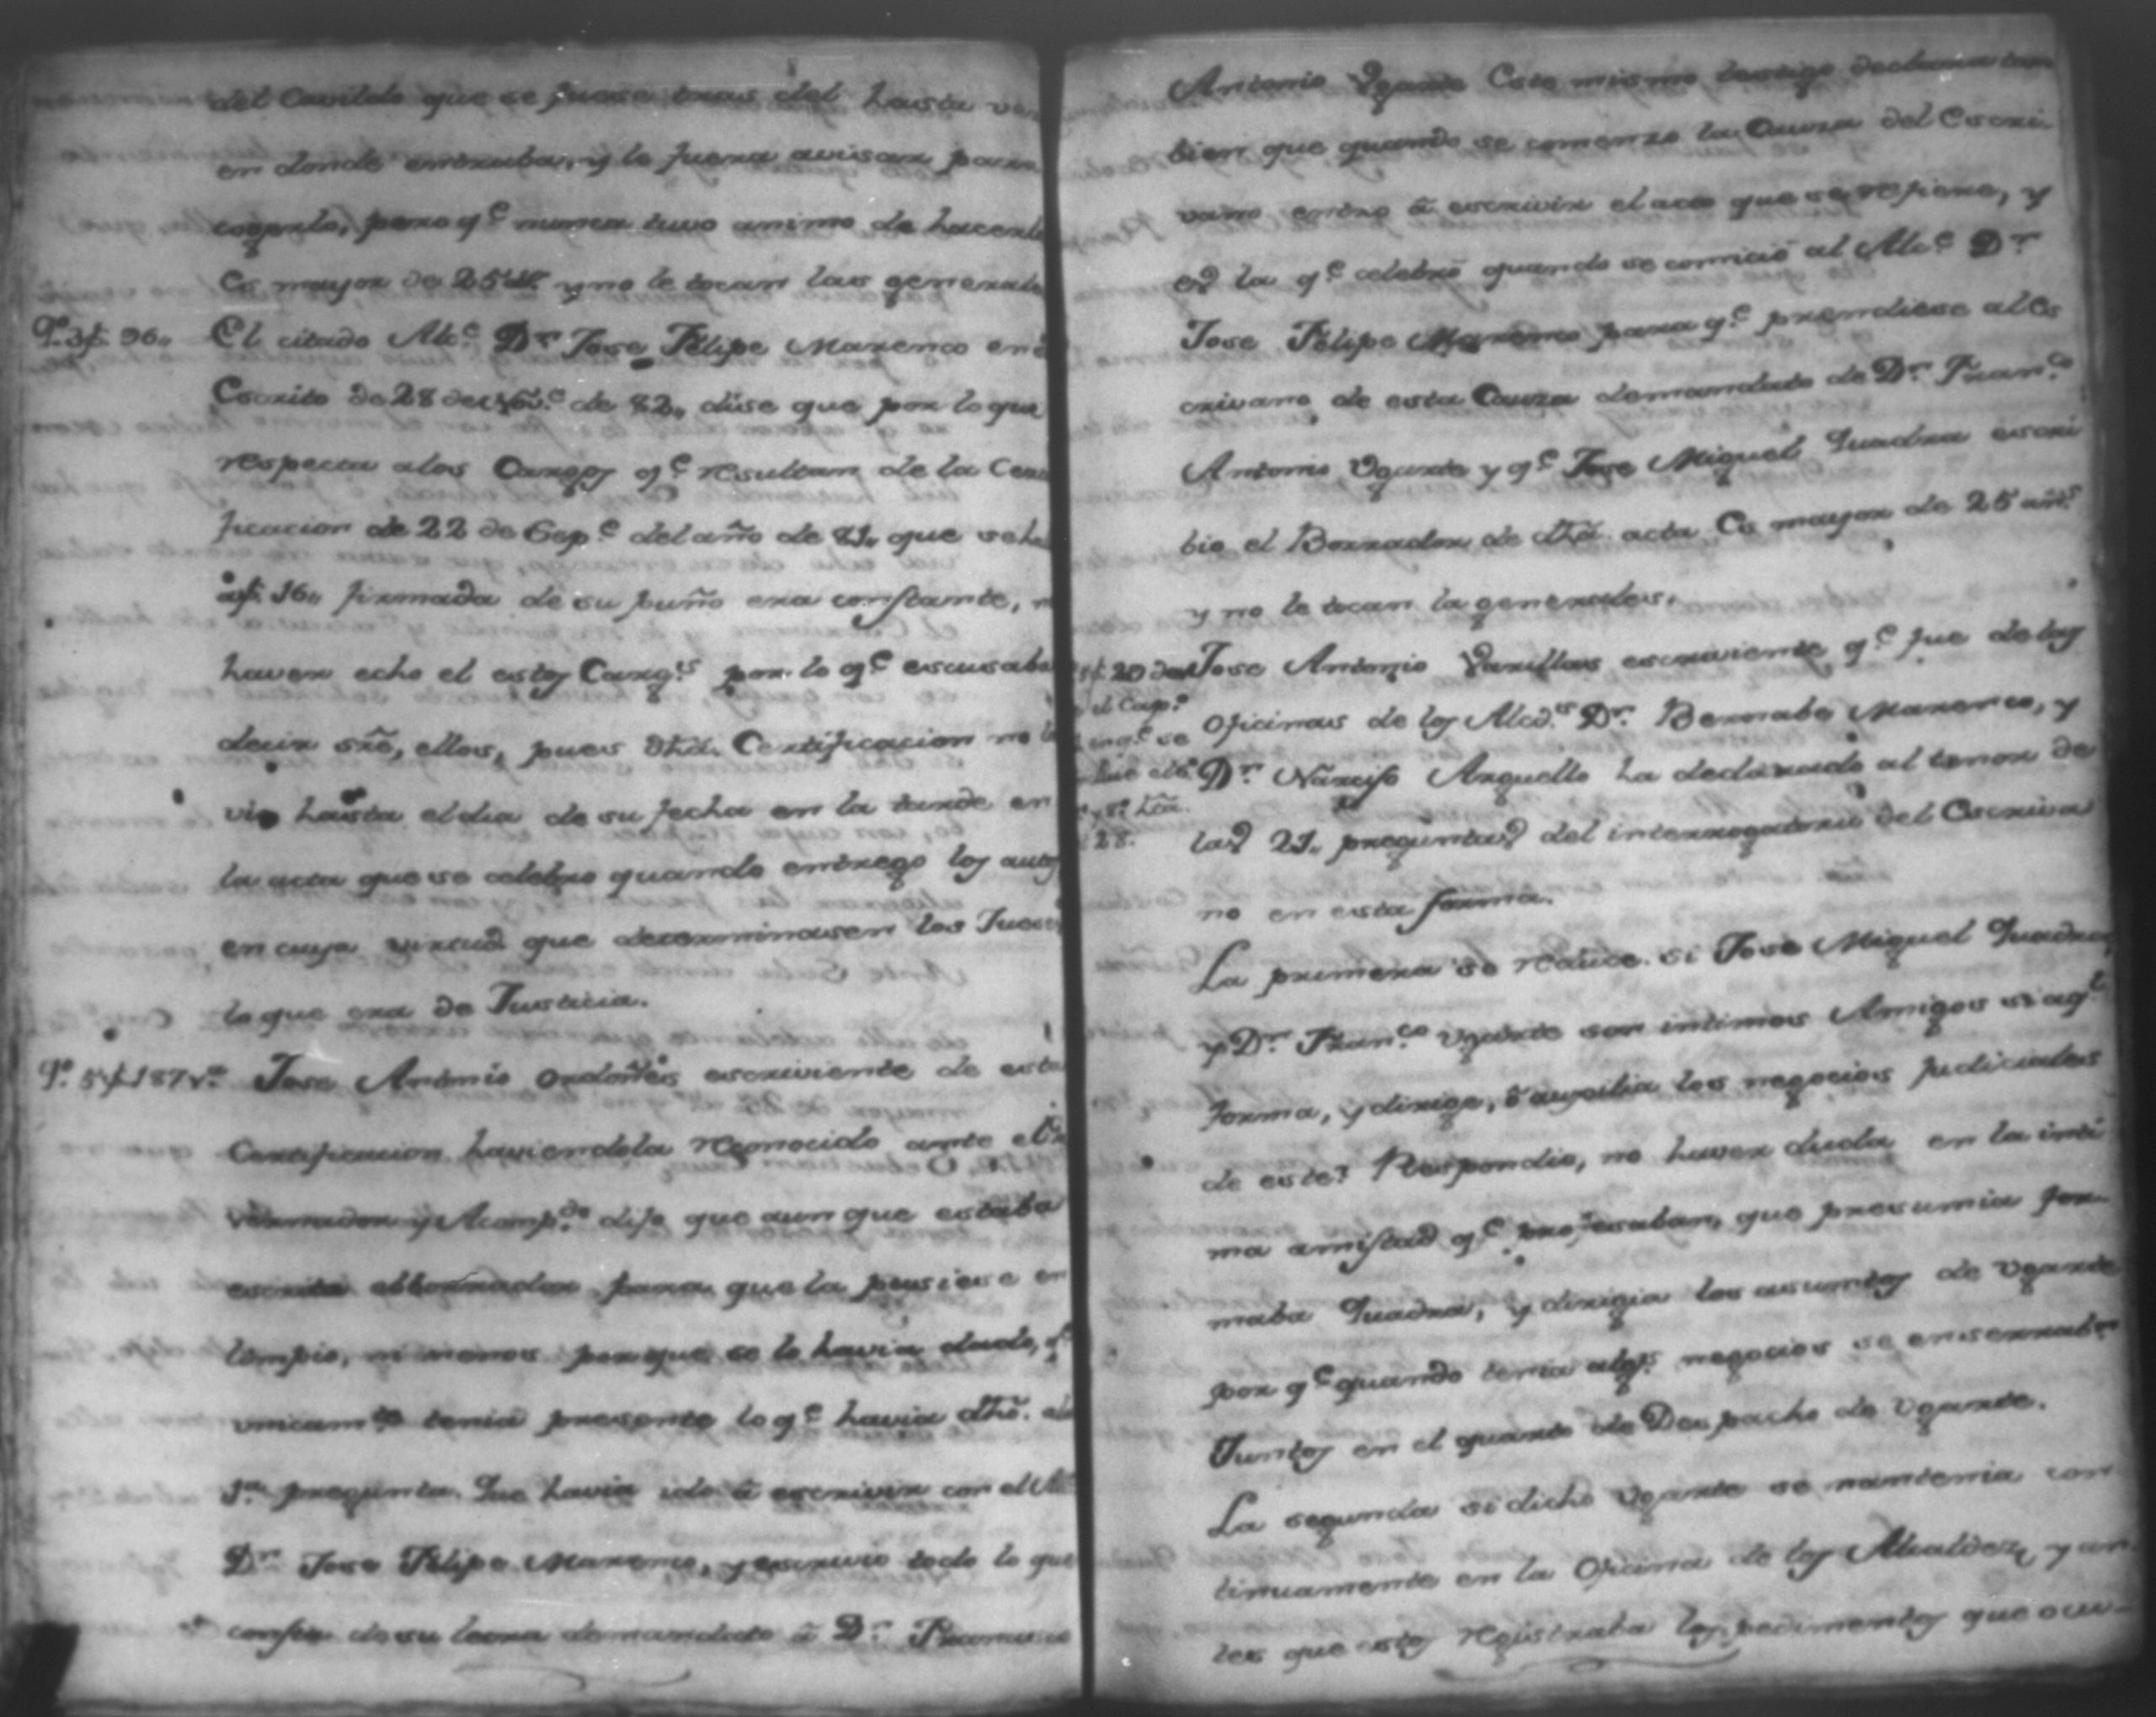 del Cavildo que se fuese tras del hasta ver
en donde entraba, y le fuera avisar para
cogerlo, pero q.e nunca tuvo animo de hacerlo
Es mayor de 25 a.s y no le tocan las generales
Q.o 3 f. 96. El citado Alc.e D.n Jose Felipe Marenco en
Escrito de 28 de de 82., dise que por lo que
respecta a los Cargos q.e resultan de la Certi
ficacion de 22 de Sep.e del año de 81. que se ha
a f. 16. firmada de su puño era constante, no
haver echo el estos Carg.s por lo q.e escusaba
decir sre, ellos, pues dha. Certificacion no la
vio hasta el dia de su fecha en la tarde en
la acta que se celebro quando entrego los autos
en cuya virtud que determinasen los Jueces
lo que era de Justicia.
Q.o 5 f. 187 v.to Jose Antonio Ordoñes escriviente de esta
Certificacion haviendola reconocido ante el
vernador y Acomp.do dijo que aun que estaba
escrita el borrador para que la pusiese en
limpio, ni menos porque se lo havia dado, q.e
unicam.te tenia presente lo q.e havia dho. a la
1.ra pregunta. Que havia ido à escrivir con el Al
D.n Jose Felipe Marenco, y escrivio todo lo que
consta de su letra de mandato à D.n Francisco
Antonio Ugarte Este mismo testigo declara tam
bien que quando se comenzo la Causa del Escri-
vano entro à escrivir el acta que se refiere, y
es la q.e celebro quando se comicio al Alc.e D.n
Jose Felipe Marenco para q.e prendiese al Es
crivano de esta Causa de mandato de D.n Fran.co
Antonio Ugarte y q.e Jose Miguel Quadra escri
bio el Borrador de dha. acta Es mayor de 25 añ.s
y no le tocan la generales.
f. 20 del Jose Antonio Varillas escriviente q.e fue de las
el Cap.o
Oficinas de los Alcd.s D.n Bernabe Marenco, y
D.n Narciso Arguello ha declarado al tenor de
28.
las 21. preguntas del interrogatorio del Escriva
no en esta forma.
La primera se reduce. si Jose Miguel Quadra,
y D.n Fran.co Ugarte son intimos Amigos si aql.
forma, y dirige, ò auxilia los negocios judiciales
de este? Respondio, no haver duda en la inti
ma amistad q.e profesaban, que presumia for-
maba Quadra, y dirigia los asumtos de Ugarte
por q.e quando tenia alg.s negocios se enserraban
Juntos en el quarto de Despacho de Ugarte.
La segunda si dicho Ugarte se mantenia con
tinuamente en la Oficina de los Alcaldes, y an
tes que estos registraba los pedimentos que ocu-